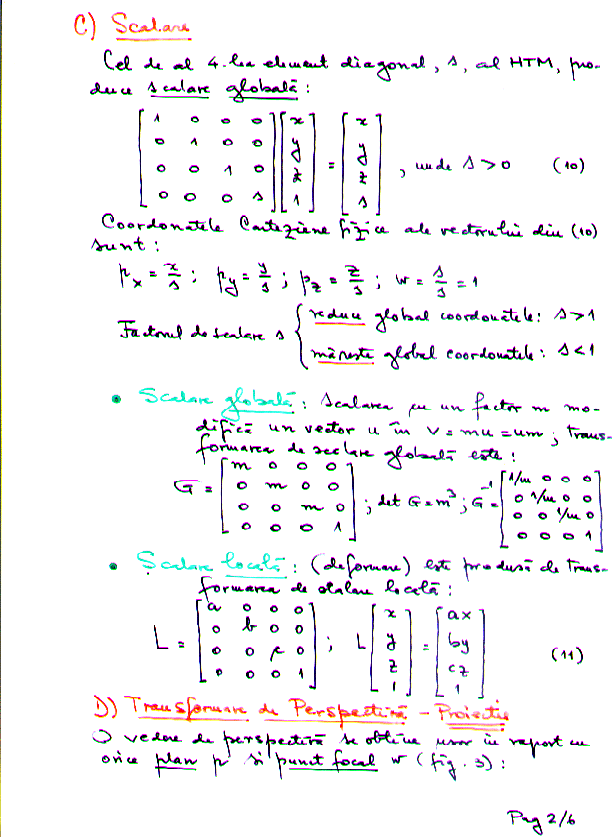 C) Scalare
Cel de al 4-lea element diagonal, s, al HTM, pro-
duce scalare globală:
[1 0 0 0; 0 1 0 0; 0 0 1 0; 0 0 0 s] [x; y; z; 1] = [x; y; z; s], unde s > 0 (10)
Coordonatele Carteziene fizice ale vectorului din (10)
sunt:
px = x/s ; py = y/s ; pz = z/s ; w = s/s = 1
Factorul de scalare s { reduce global coordonatele: s>1
mărește global coordonatele: s<1
• Scalare globală: scalarea cu un factor m mo-
difică un vector u în v = mu = um; trans-
formarea de scalare globală este:
G = [m 0 0 0; 0 m 0 0; 0 0 m 0; 0 0 0 1] ; det G = m³ ; G⁻¹ = [1/m 0 0 0; 0 1/m 0 0; 0 0 1/m 0; 0 0 0 1]
• Scalare locală: (deformare) este produsă de trans-
formarea de locală:
L = [a 0 0 0; 0 b 0 0; 0 0 c 0; 0 0 0 1] ; L [x; y; z; 1] = [ax; by; cz; 1] (11)
D) Transformare de Perspectivă - Proiecție
O vedere de perspectivă se obține în raport cu
orice plan p și punct focal w (fig. 3):
Pag 2/6